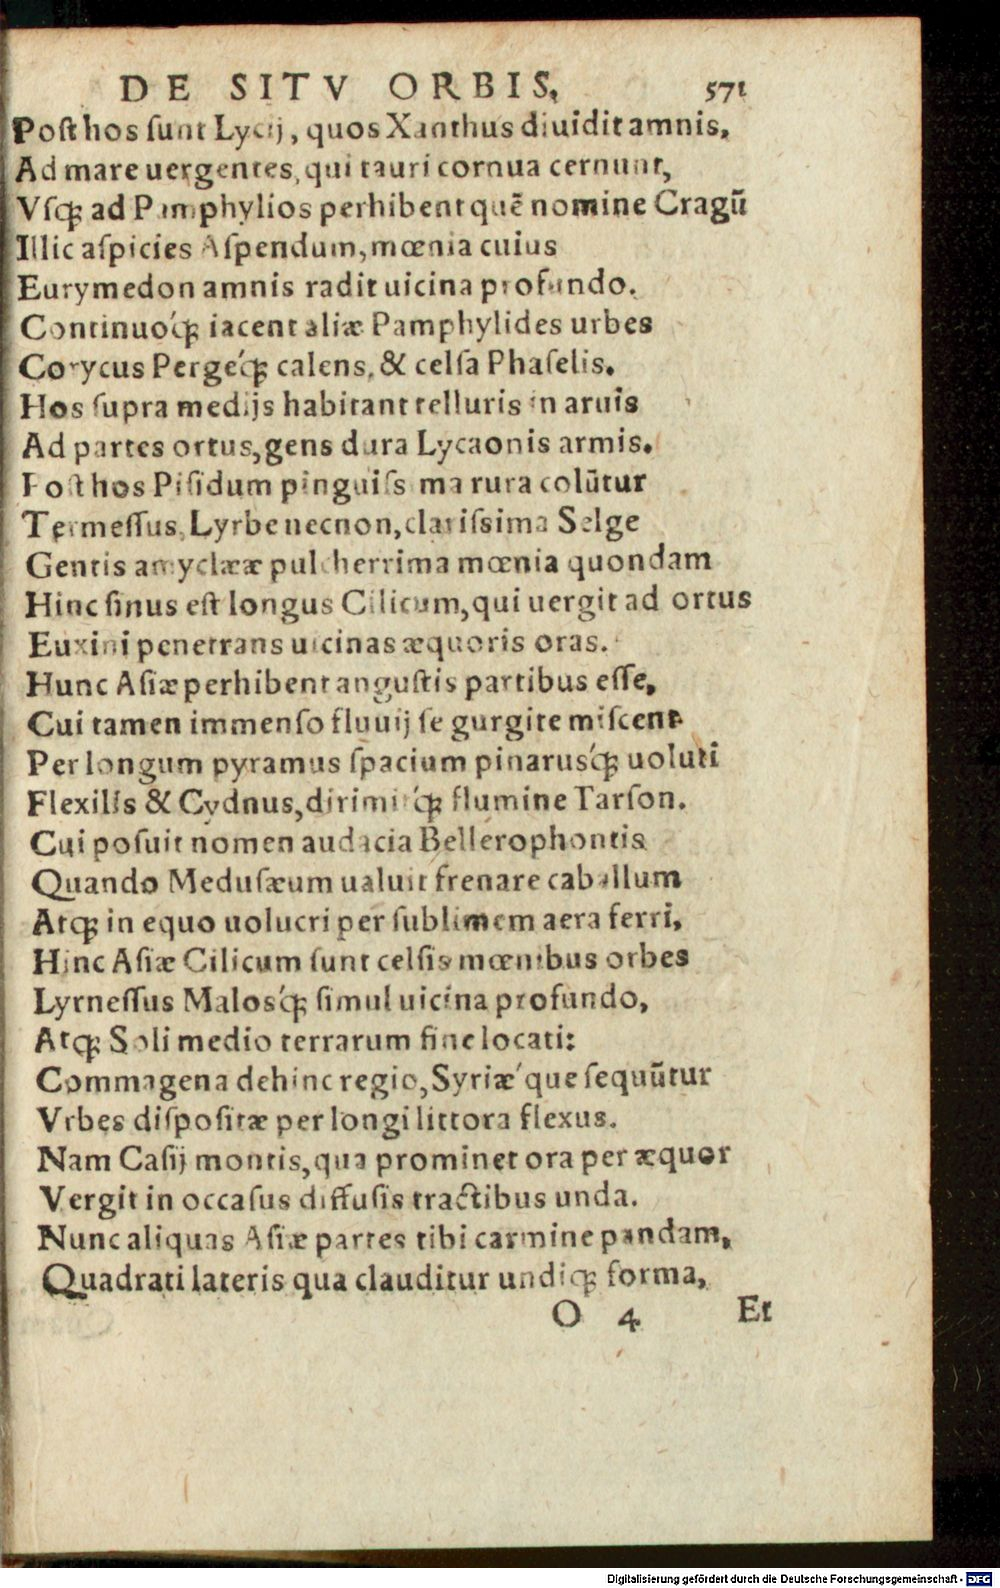 DE SITV ORBIS, 571
Post hos sunt Lycij, quos Xanthus diuidit amnis,
Ad mare uergentes, qui tauri cornua cernunt,
Vsq́; ad Pamphylios perhibent quē nomine Cragū
Illic aspicies Aspendum, mœnia cuius
Eurymedon amnis radit uicina profundo.
Continuoq́; iacent aliæ Pamphylides urbes
Corycus Pergeq́; calens, & celsa Phaselis.
Hos supra medijs habitant telluris in aruis
Ad partes ortus, gens dura Lycaonis armis.
Post hos Pisidum pinguissima rura colūtur
Termessus, Lyrbe necnon, clarissima Selge
Gentis amyclææ pulcherrima mœnia quondam
Hinc sinus est longus Cilicum, qui uergit ad ortus
Euxini penetrans uicinas æquoris oras.
Hunc Asiæ perhibent angustis partibus esse,
Cui tamen immenso fluuij se gurgite miscent
Per longum pyramus spacium pinarusq́; uoluti
Flexilis & Cydnus, dirimitq́; flumine Tarson.
Cui posuit nomen audacia Bellerophontis
Quando Medusæum ualuit frenare caballum
Atq; in equo uolucri per sublimem aera ferri,
Hinc Asiæ Cilicum sunt celsis mœnibus orbes
Lyrnessus Malosq́; simul uicina profundo,
Atq; Soli medio terrarum fine locati:
Commagena dehinc regio, Syriæ que sequūtur
Vrbes dispositæ per longi littora flexus.
Nam Casij montis, qua prominet ora per æquor
Vergit in occasus diffusis tractibus unda.
Nunc aliquas Asiæ partes tibi carmine pandam,
Quadrati lateris qua clauditur undiq; forma,
O 4 Et
Digitalisierung gefördert durch die Deutsche Forschungsgemeinschaft - DFG